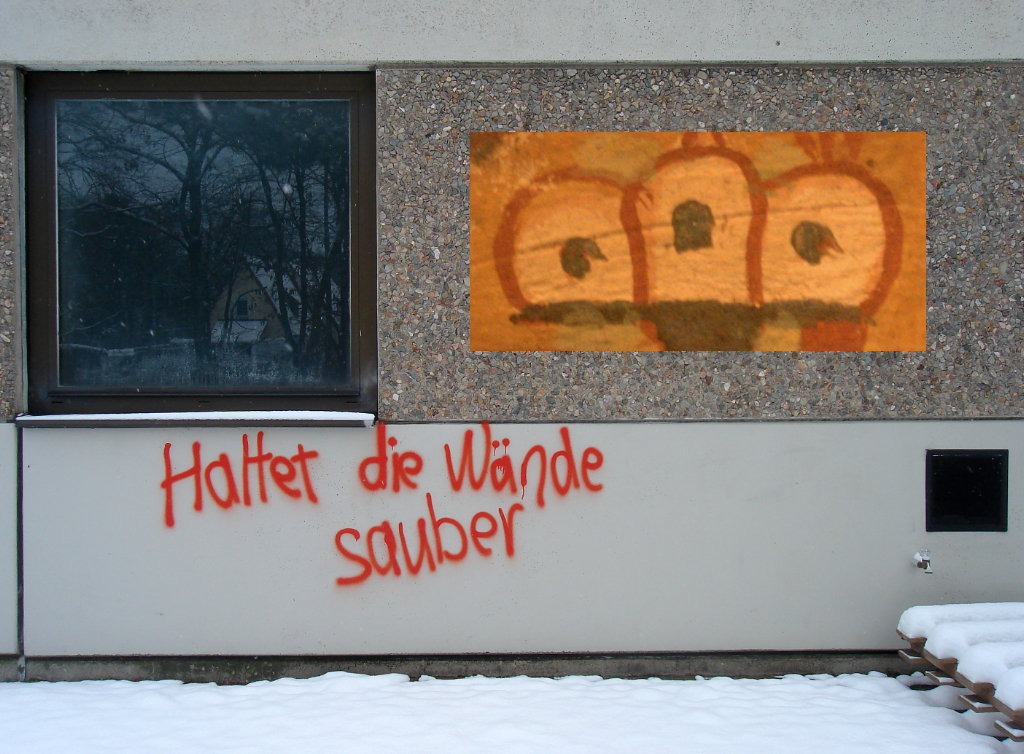 Haltet die Wände
sauber